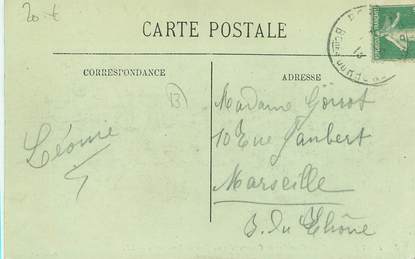 20 €
CARTE POSTALE
CORRESPONDANCE
ADRESSE
13
Madame
10 Rue Jaubert
Léonie
Marseille
B. du Rhône